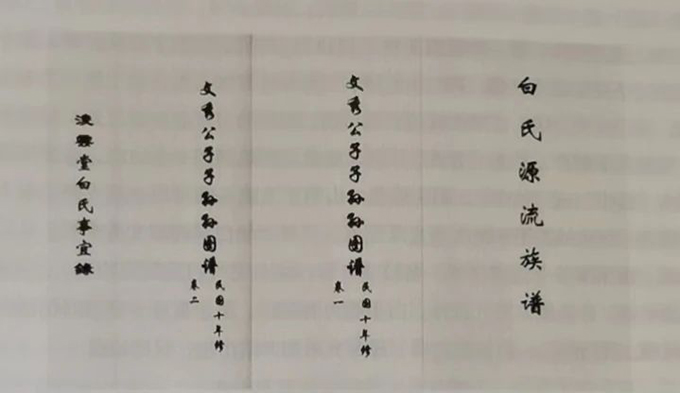 白氏源流族谱
文秀公子子孙孙图谱
民国十年修
卷一
文秀公子子孙孙图谱
民国十年修
卷二
雲堂白氏事宜錄